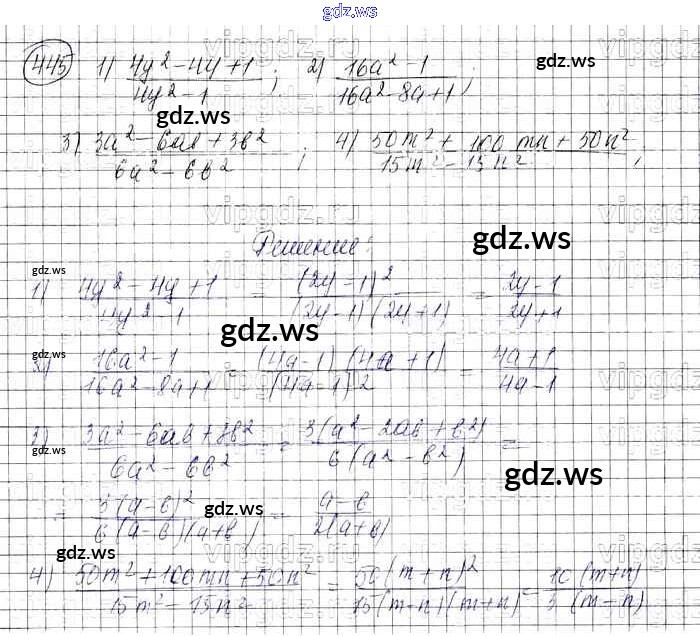 gdz.ws
445 1) (4y² - 4y + 1)/(4y² - 1); 2) (16a² - 1)/(16a² - 8a + 1);
gdz.ws
3) (3a² - 6ab + 3b²)/(6a² - 6b²); 4) (50m² + 100mn + 50n²)/(15m² - 15n²);
Решение:
gdz.ws
1) (4y² - 4y + 1)/(4y² - 1) = (2y - 1)²/((2y - 1)(2y + 1)) = (2y - 1)/(2y + 1)
gdz.ws
2) (16a² - 1)/(16a² - 8a + 1) = ((4a - 1)(4a + 1))/(4a - 1)² = (4a + 1)/(4a - 1)
3) (3a² - 6ab + 3b²)/(6a² - 6b²) = 3(a² - 2ab + b²)/6(a² - b²) =
gdz.ws
= 3(a - b)²/6(a - b)(a + b) = (a - b)/2(a + b)
gdz.ws
4) (50m² + 100mn + 50n²)/(15m² - 15n²) = 50(m + n)²/15(m - n)(m + n) = 10(m + n)/3(m - n)